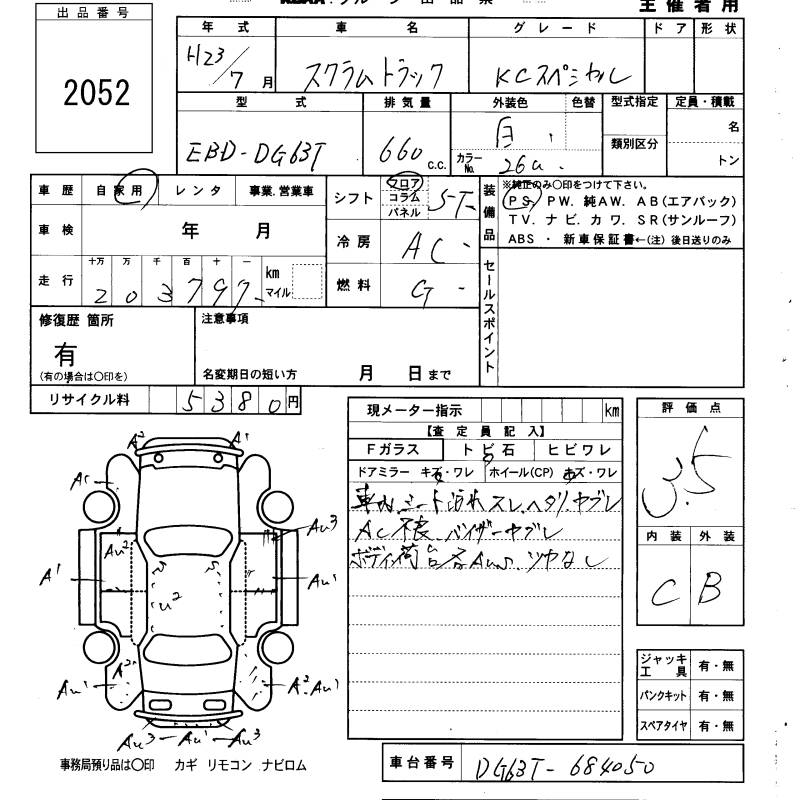 出品番号
2052
主催者用
年式 車名 グレード ドア 形状
H23/7月 スクラムトラック KCスペシャル
型式 排気量 外装色 色替 型式指定 定員・積載
EBD-DG63T 660 c.c. 白 類別区分 名
カラーNo. 26u トン
車歴 自家用 レンタ 事業.営業車
シフト フロア コラム パネル 5-T-
装備品 ※純正のみ〇印をつけて下さい。
PS. PW. 純AW. AB(エアバック)
TV. ナビ. カワ. SR(サンルーフ)
ABS ・ 新車保証書←(注) 後日送りのみ
車検 年 月
冷房 AC-
走行 十万 万 千 百 十 一
203797- km マイル
燃料 G-
セールスポイント
修復歴 箇所 注意事項
有
(有の場合は〇印を) 名変期日の短い方 月 日まで
リサイクル料 5380円
現メーター指示 km
【査定員記入】
Fガラス トビ石 ヒビワレ
ドアミラー キズ・ワレ ホイール(CP) キズ・ワレ
車内、シート汚れ スレ、ヘタリ、ヤブレ
AC不良、バイザーヤブレ
ボディ荷台各AUS、ツヤなし
評価点
3.5
内装 外装
C B
A2 A1
A1
AU3
AU2
A1 AU1
U2
A2
AU1 A2.AU1
AU3-AU1-AU3
ジャッキ工具 有・無
パンクキット 有・無
スペアタイヤ 有・無
事務局預り品は〇印 カギ リモコン ナビロム
車台番号 DG63T-684050